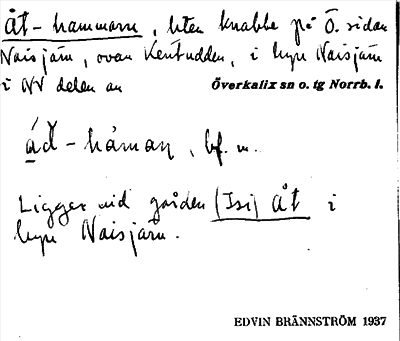 Åt-hammarn, liten knabbe på Ö. sidan
Naisjärv, ovan Kentudden, i byn Naisjärv
i NV delen av Överkalix sn o. tg Norrb. l.
áð-håman, bf. m.
Ligger vid gården (Isi) Åt i
byn Naisjärv.
EDVIN BRÄNNSTRÖM 1937